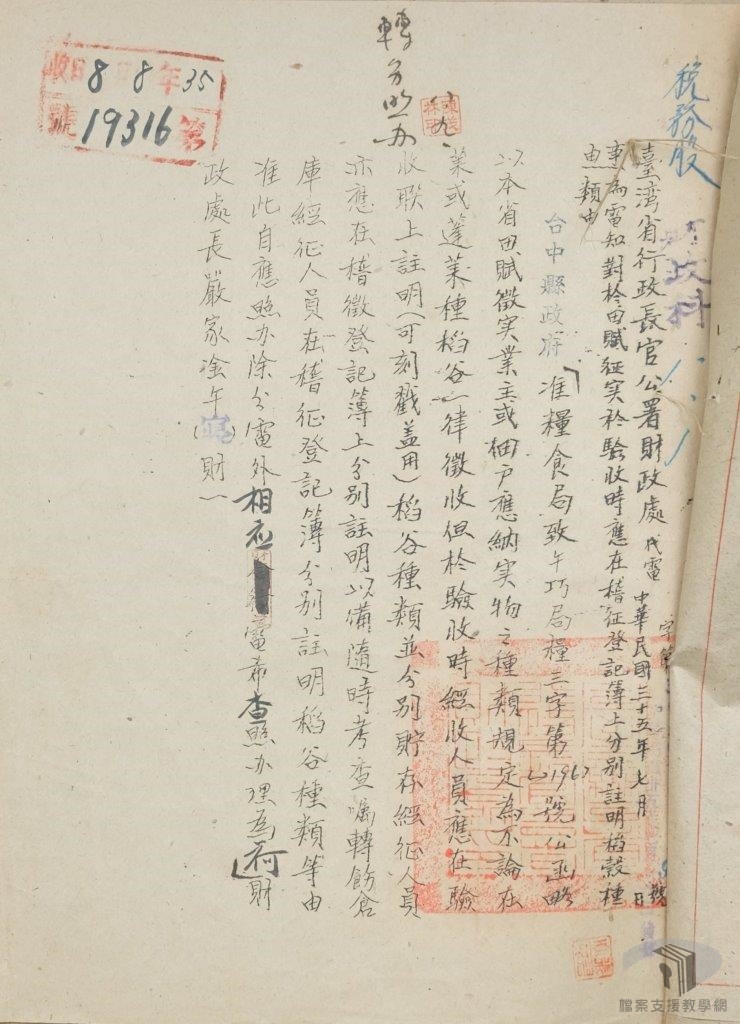 稅務股
財政科
臺灣省行政長官公署財政處代電 中華民國三十五年七月 日
字第 號
事由 為電知對於田賦征实於驗收時應在稽征登記簿上分別註明稻穀種
類由
台中縣政府「准糧食局致午巧局糧三字第 號公函略
以本省田賦徵实業主或佃戶應納实物之種類規定為不論在
萊或蓬萊種稻谷一律徵收但於驗收時經收人員應在驗
收联上註明(可刻戳盖用)稻谷種類並分別貯存經征人員
亦應在稽徵登記簿上分別註明以備隨時考查囑轉飭倉
庫經征人員在稽征登記簿分別註明稻谷種類等由
准此自應照办除分電外相应 電希查照办理為荷」財
政處長嚴家淦午( )財一
轉分照办
收 日 8 8 年 35
第 19316 號
檔案支援教學網